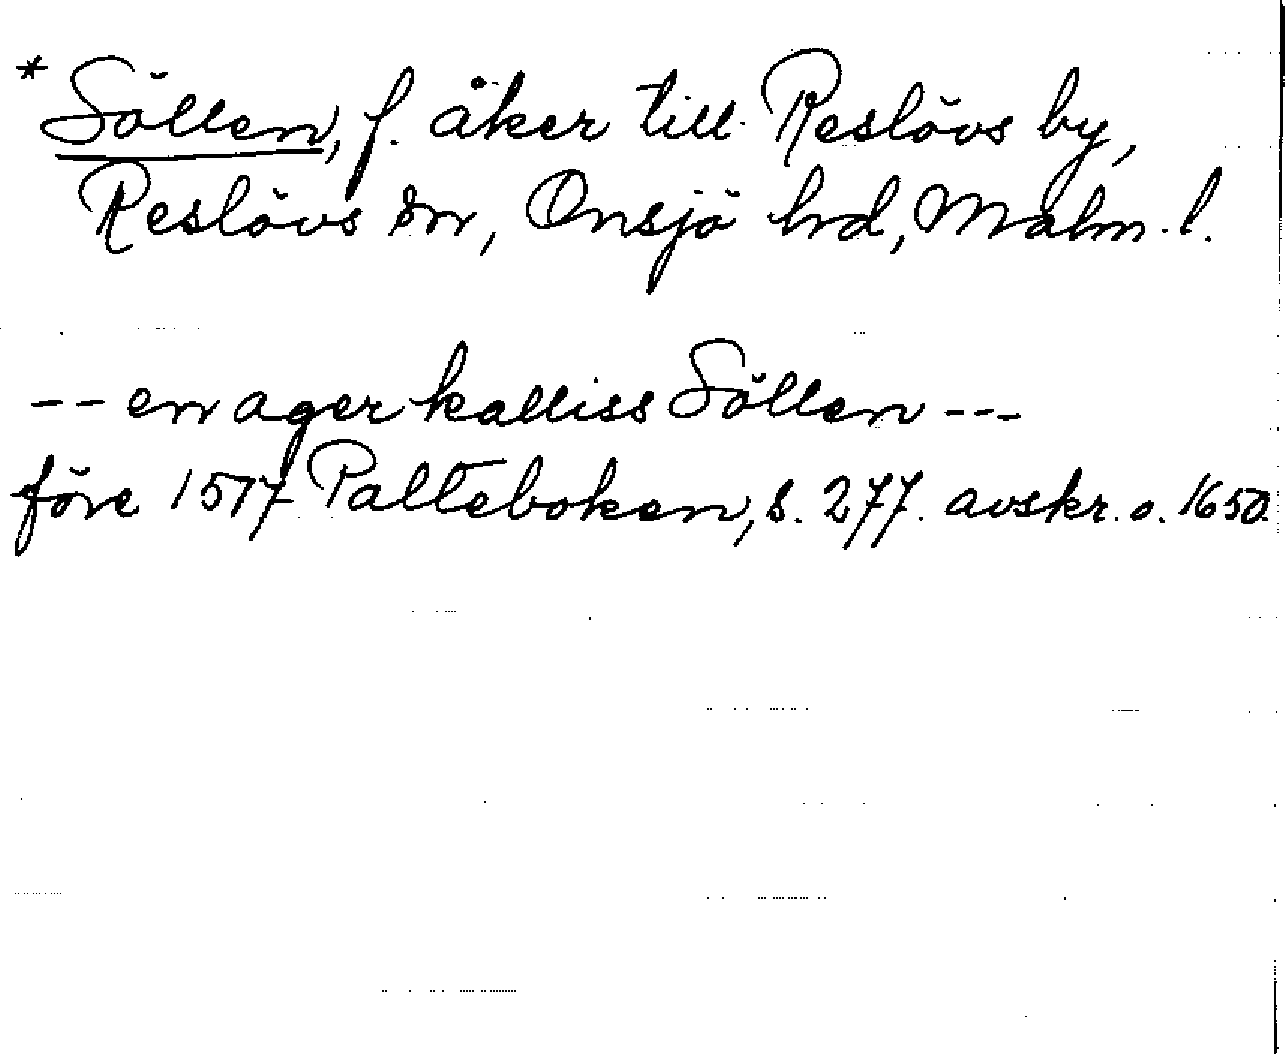 * Söllen, f. åker till Reslövs by,
Reslövs sn, Onsjö hd, Malm. l.
-- en ager kalliss Söllen ---
före 1517 Palteboken, s. 277. avskr. o. 1650.